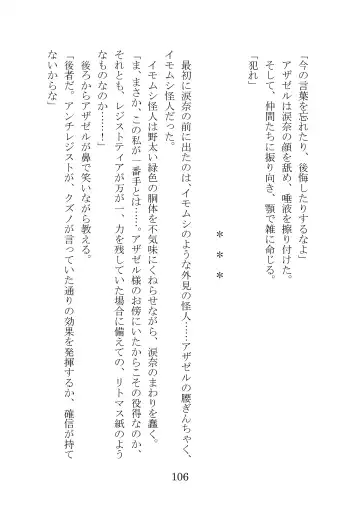 「今の言葉を忘れたり、後悔したりするなよ」
アザゼルは涙奈の顔を舐め、唾液を擦り付けた。
そして、仲間たちに振り向き、顎で雑に命じる。
「犯れ」
＊　＊　＊
最初に涙奈の前に出たのは、イモムシのような外見の怪人……アザゼルの腰ぎんちゃく、
イモムシ怪人だった。
イモムシ怪人は野太い緑色の胴体を不気味にくねらせながら、涙奈のまわりを蠢く。
「ま、まさか、この私が一番手とは……。アザゼル様のお傍にいたからこその役得なのか、
それとも、レジストティアが万が一、力を残していた場合に備えての、リトマス紙のよう
なものなのか……！」
後ろからアザゼルが鼻で笑いながら教える。
「後者だ。アンチレジストが、クズノが言っていた通りの効果を発揮するか、確信が持て
ないからな」
106